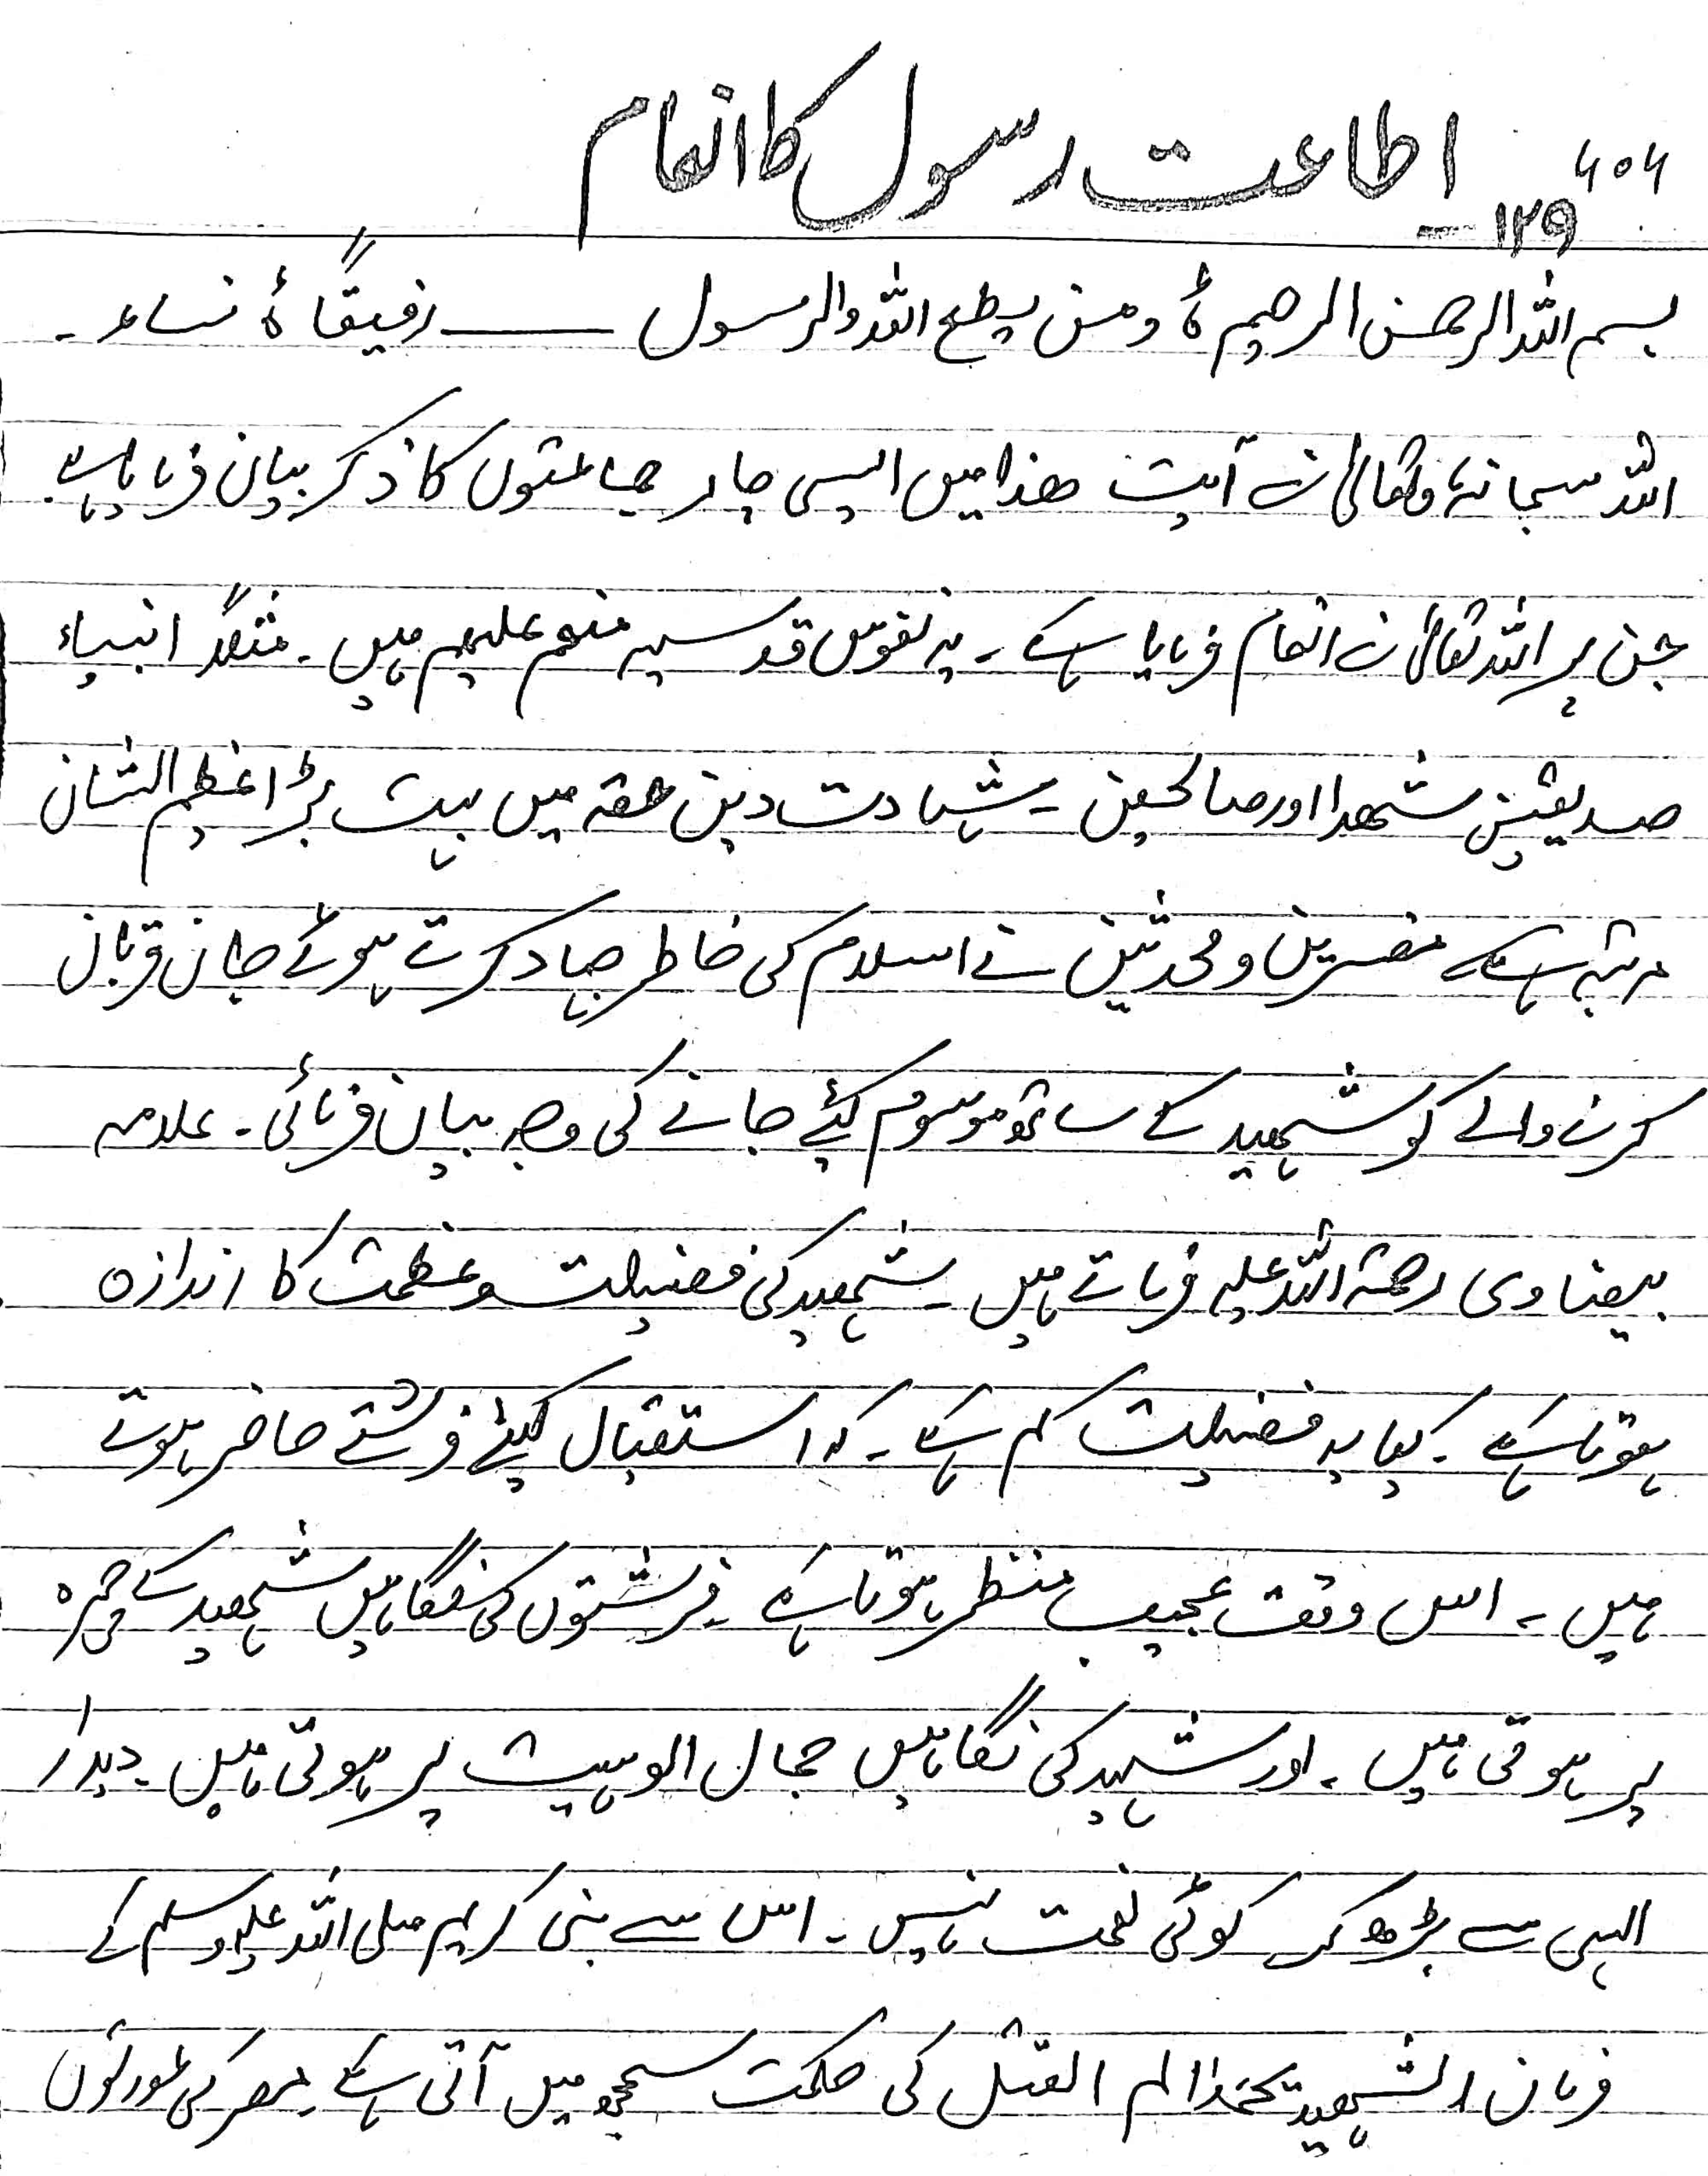 ۴۰۴
۱۲۹ـ اطاعت رسول کا انعام
بسم اللہ الرحمن الرحیم ہٗ ومن یطع اللہ والرسول ـــــ رفیقًا ہٗ نساء ۔
اللہ سبحانہٗ وتعالیٰ نے آیت ھذا میں ایسی چار جماعتوں کا ذکر بیان فرمایا ہے۔
جن پر اللہ تعالیٰ نے انعام فرمایا ہے ۔ یہ نفوس قدسیہ منعم علیھم ہیں ۔ مثلاً انبیاء
صدیقین شھدا اور صالحین ۔ شہادت دین حقہ میں بہت بڑا عظیم الشان
مرتبہ ہے ۔ مفسرین و محدثین نے اسلام کی خاطر جہاد کرتے ہوئے جان قربان
کرنے والے کو شہید کے ساتھ موسوم کئے جانے کی وجہ بیان فرمائی ۔ علامہ
بیضاوی رحمۃ اللہ علیہ فرماتے ہیں ۔ شہید کی فضیلت و عظمت کا اندازہ
ہوتا ہے ۔ کیا یہ فضیلت کم ہے ۔ کہ استقبال کیلئے فرشتے حاضر ہوتے
ہیں ۔ اس وقت عجیب منظر ہوتا ہے ۔ فرشتوں کی نگاہیں شہید کے چہرہ
پر ہوتی ہیں ۔ اور شہید کی نگاہیں جمال الوہیت پر ہوتی ہیں ۔ دیدار
الہی سے بڑھ کر کوئی نعمت نہیں ۔ اس سے نبی کریم صلی اللہ علیہ وسلم کے
فرمان الشہید الم القتل کی حکمت سمجھ میں آتی ہے ۔ مصر کی عورتوں